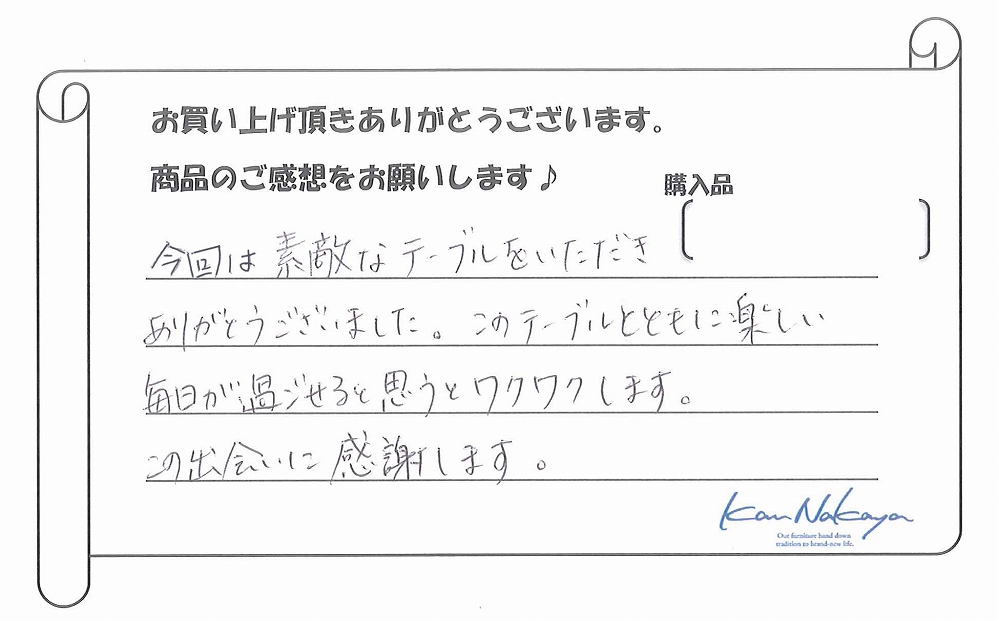 お買い上げ頂きありがとうございます。
商品のご感想をお願いします♪
購入品
今回は素敵なテーブルをいただき
ありがとうございました。このテーブルとともに楽しい
毎日が過ごせると思うとワクワクします。
この出会いに感謝します。
Kan Nakaya
Our furniture hand down
tradition to brand-new life.